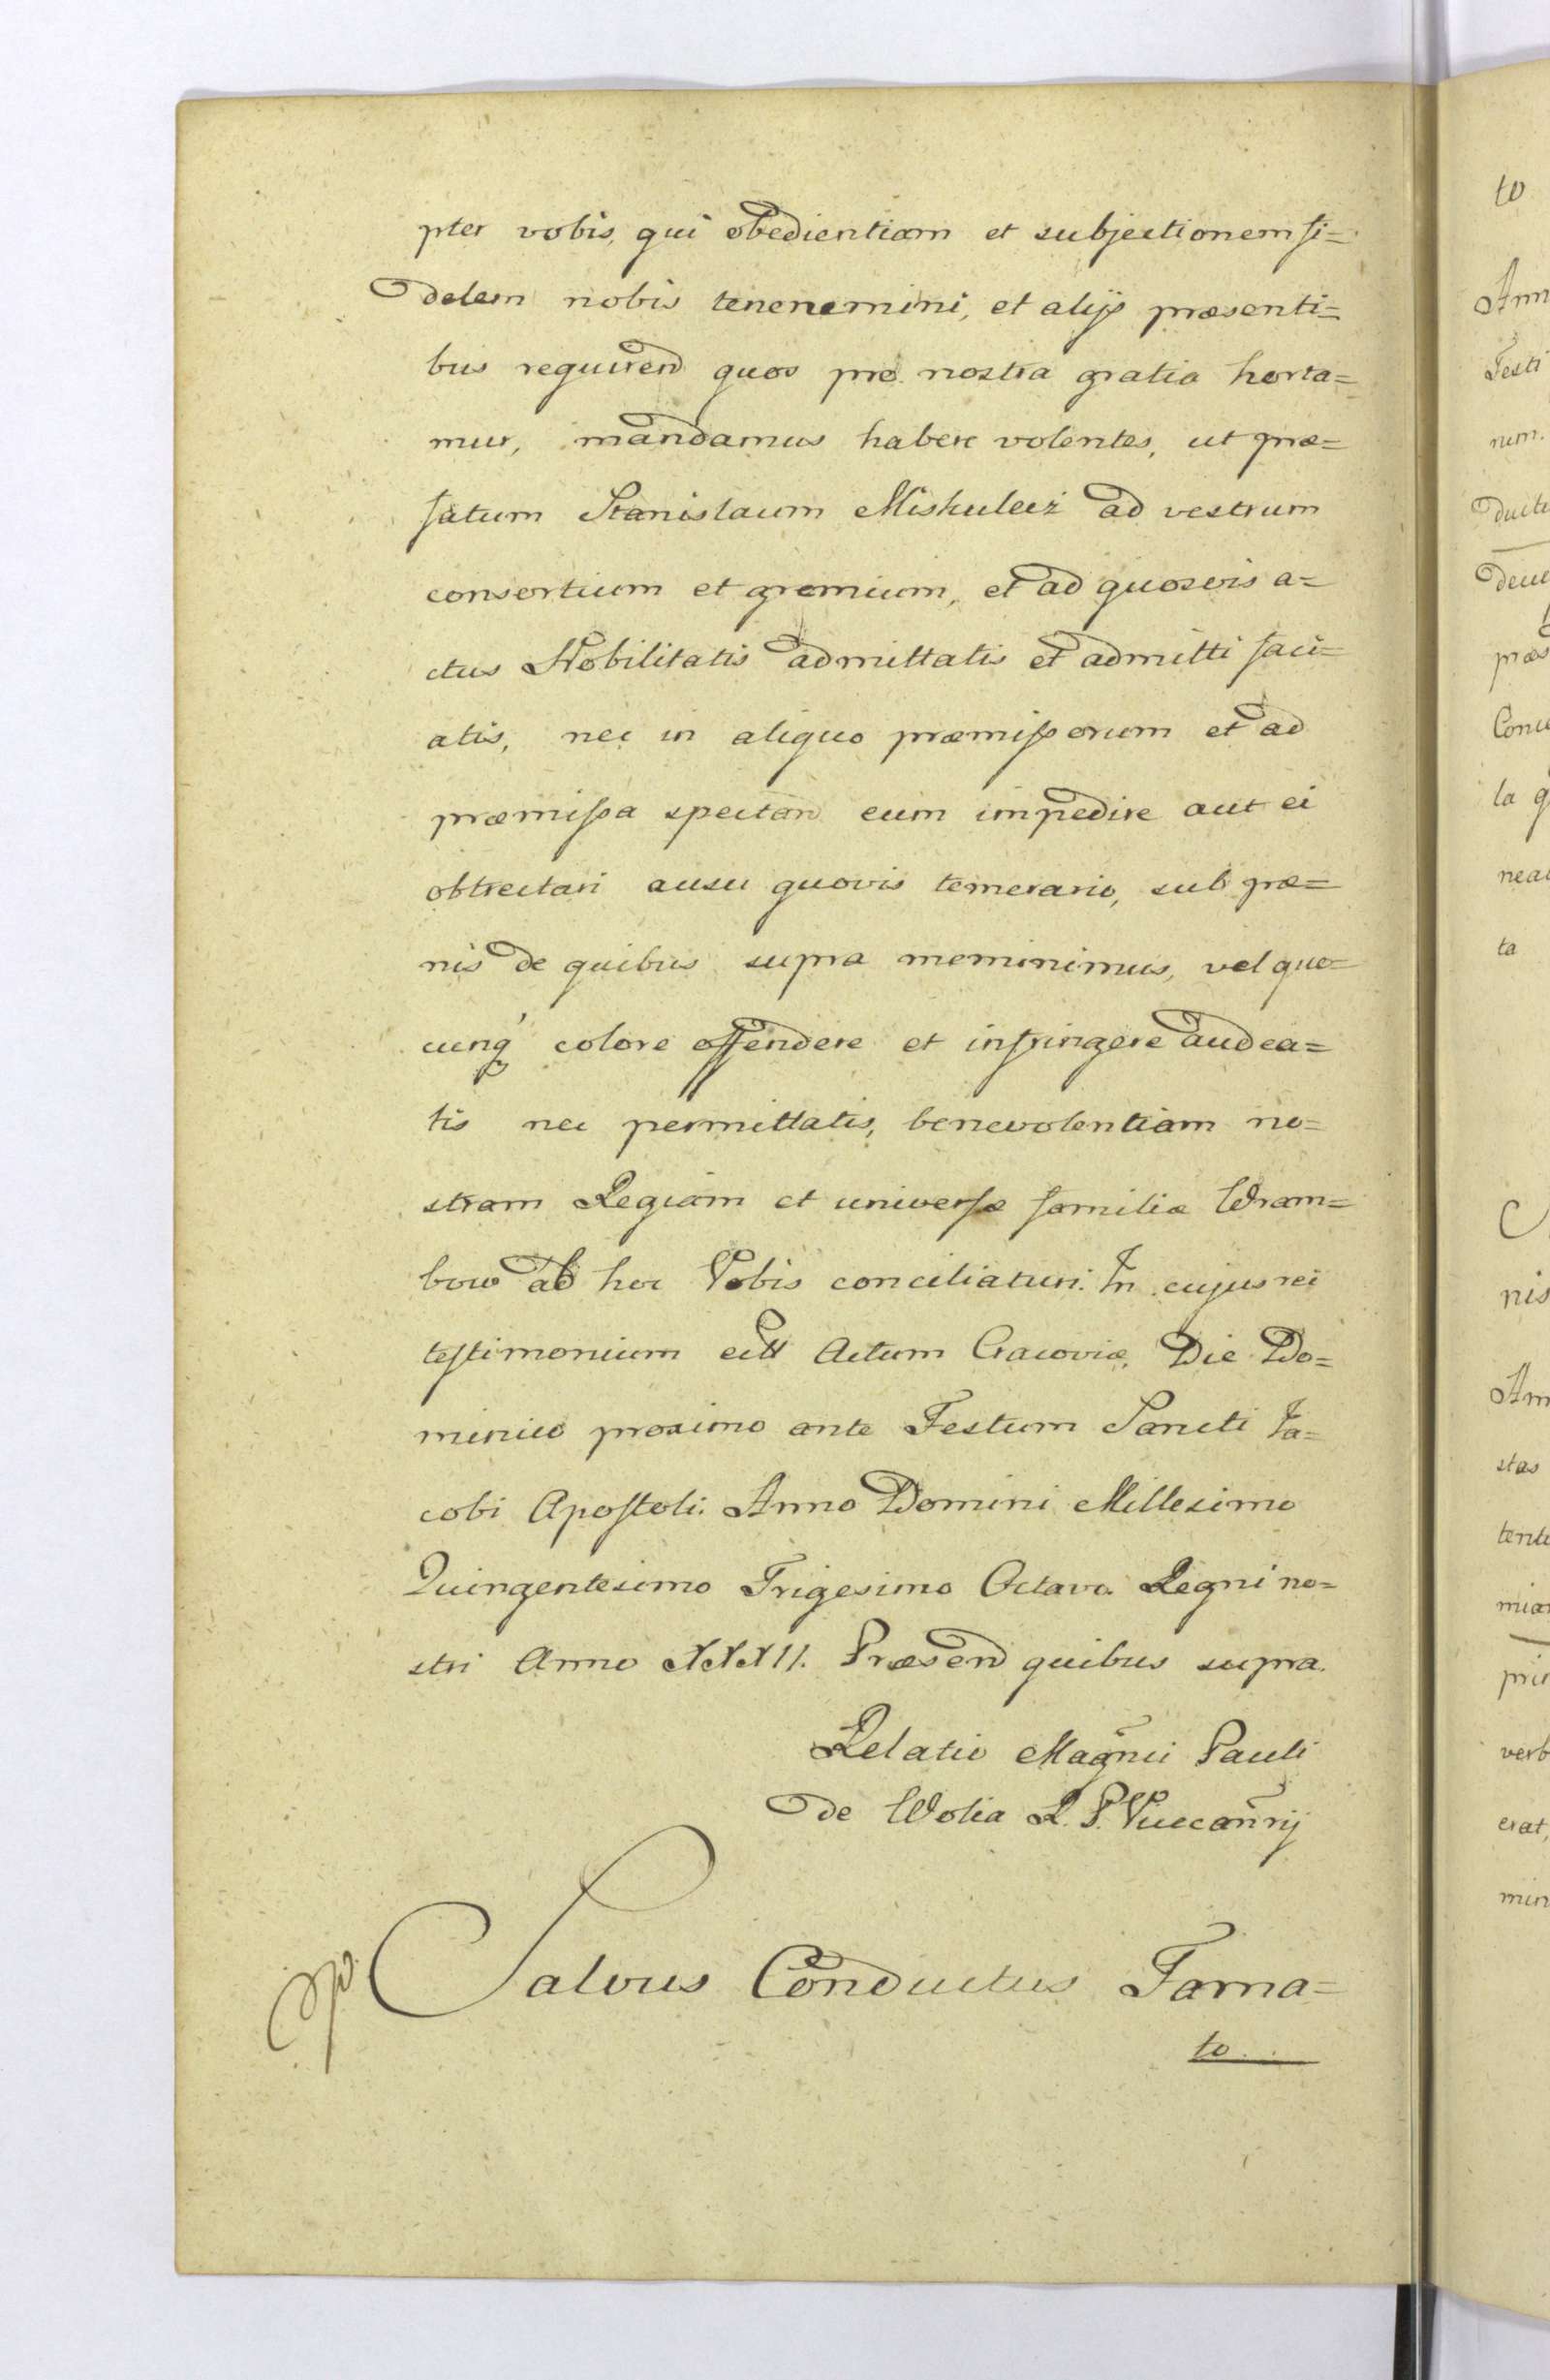 pter vobis, qui obedientiam et subjectionem fi=
delem nobis tenenemini, et alijs præsenti=
bus requirend quos pro nostra gratia horta=
mur, mandamus habere volentes, ut præ=
fatum Stanislaum Miskuleez ad vestrum
consortium et gremium, et ad quosvis a=
ctus Nobilitatis admittatis et admitti faci=
atis, nec in aliquo præmissorum et ad
præmissa spectan eum impedire aut ei
obtrectari ausu quovis temerario, sub pæ=
nis de quibus supra meminimus, vel quo=
cunq colore offendere et infringere audea=
tis nec permittatis, benevolentiam no=
stram Regiam et universæ familiæ Wram=
bow ab hoc Vobis conciliaturi. In cujus rei
testimonium ect Actum Cracoviæ, Die Do=
minico proximo ante Festum Sancti Ja=
cobi Apostoli. Anno Domini Millesimo
Quingentesimo Trigesimo Octavo Regni no=
stri Anno XXXII. Præsend quibus supra.
Relatio Magnii Pauli
de Wolia R. P. Vicecanrij
Salvus Conductus Farna=
to
to
Ann
Festi
num.
ducti
præs
la q
ta
nis
stas
verb
erat,